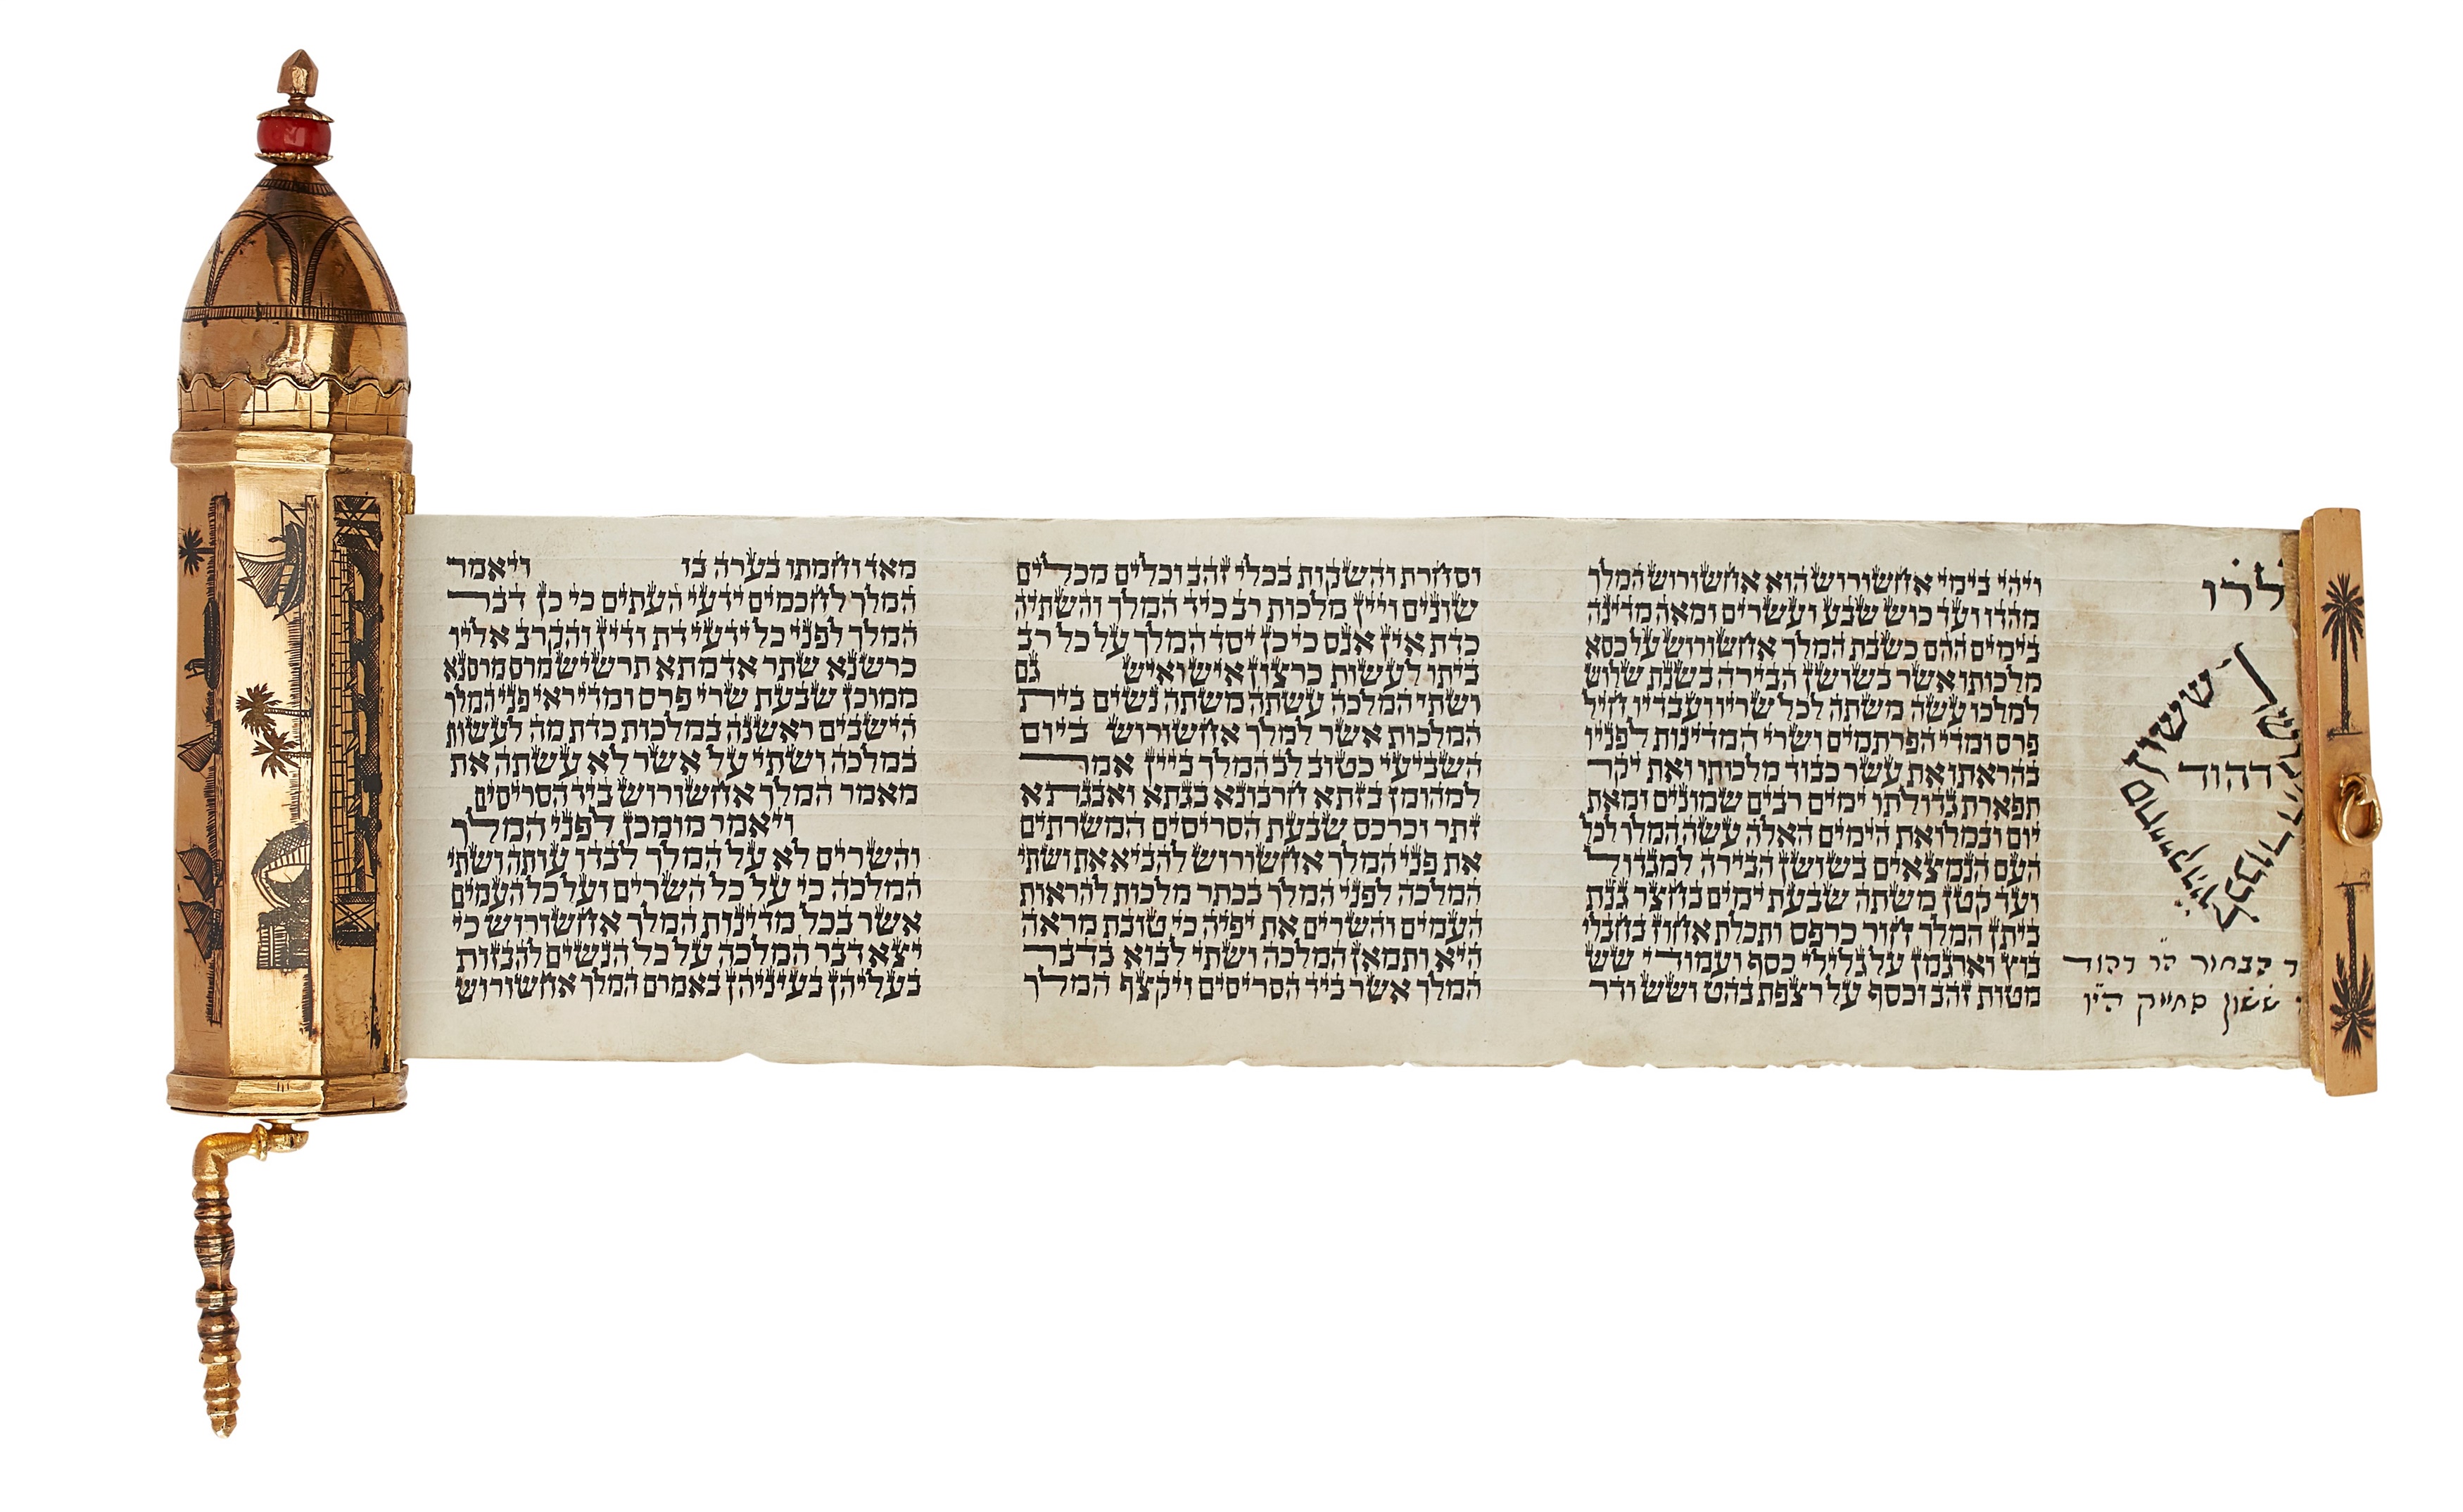 ששון
דהוד
ששון סחייק
ויהי בימי אחשורוש הוא אחשורוש המלך
מהדו ועד כוש שבע ועשרים ומאה מדינה
בימים ההם כשבת המלך אחשורוש על כסא
מלכותו אשר בשושן הבירה בשנת שלוש
למלכו עשה משתה לכל שריו ועבדיו חיל
פרס ומדי הפרתמים ושרי המדינות לפניו
בהראתו את עשר כבוד מלכותו ואת יקר
תפארת גדולתו ימים רבים שמונים ומאת
יום ובמלואת הימים האלה עשה המלך לכל
העם הנמצאים בשושן הבירה למגדול
ועד קטן משתה שבעת ימים בחצר גנת
ביתן המלך חור כרפס ותכלת אחוז בחבלי
בוץ וארגמן על גלילי כסף ועמודי שש
מטות זהב וכסף על רצפת בהט ושש ודר
וסחרת והשקות בכלי זהב וכלים מכלים
שונים ויין מלכות רב כיד המלך והשתיה
כדת אין אנס כי כן יסד המלך על כל רב
ביתו לעשות כרצון איש ואיש גם
ושתי המלכה עשתה משתה נשים בית
המלכות אשר למלך אחשורוש ביום
השביעי כטוב לב המלך ביין אמר
למהומן בזתא חרבונא בגתא ואבגתא
זתר וכרכס שבעת הסריסים המשרתים
את פני המלך אחשורוש להביא את ושתי
המלכה לפני המלך בכתר מלכות להראות
העמים והשרים את יפיה כי טובת מראה
היא ותמאן המלכה ושתי לבוא בדבר
המלך אשר ביד הסריסים ויקצף המלך
מאד וחמתו בערה בו ויאמר
המלך לחכמים ידעי העתים כי כן דבר
המלך לפני כל ידעי דת ודין והקרב אליו
כרשנא שתר אדמתא תרשיש מרס מרסנא
ממוכן שבעת שרי פרס ומדי ראי פני המלך
הישבים ראשנה במלכות כדת מה לעשות
במלכה ושתי על אשר לא עשתה את
מאמר המלך אחשורוש ביד הסריסים
ויאמר מומכן לפני המלך
והשרים לא על המלך לבדו עותה ושתי
המלכה כי על כל השרים ועל כל העמים
אשר בכל מדינות המלך אחשורוש כי
יצא דבר המלכה על כל הנשים להבזות
בעליהן בעיניהן באמרם המלך אחשורוש